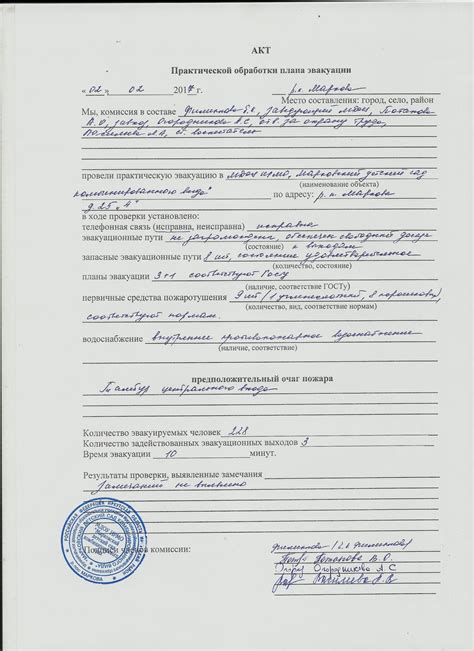 АКТ
Практической обработки плана эвакуации
« 02 » 02 2017 г. р.п. Маркова
Место составления: город, село, район
Мы, комиссия в составе Филиппова заведующий МДОУ, Потапова
А.О, завхоз Огородникова А.С, отв. за охрану труда,
Васильева А.А, ст. воспитатель
провели практическую эвакуацию в МДОУ ИРМО, Марковский детский сад
(наименование объекта)
комбинированного вида" по адресу: р.п. Маркова
д.25 "А"
в ходе проверки установлено:
телефонная связь (исправна, неисправна) исправна
эвакуационные пути не загромождены, обеспечен свободный доступ
(состояние) к выходам
запасные эвакуационные пути 8 шт, состояние удовлетворительное
(количество, состояние)
планы эвакуации 3+1 соответствуют Госту
(наличие, соответствие ГОСТУ)
первичные средства пожаротушения 9 шт (1 углекислотный, 8 порошковых)
(количество, вид, соответствие нормам)
соответствуют нормам.
водоснабжение внутреннее противопожарное водоснабжение
(наличие, соответствие)
предположительный очаг пожара
Тамбур центрального входа
Количество эвакуируемых человек 228
Количество задействованных эвакуационных выходов 3
Время эвакуации 10 минут.
Результаты проверки, выявленные замечания
Замечаний не выявлено
Подписи членов комиссии:
Потапова
Огородникова А.С
Васильева А.А